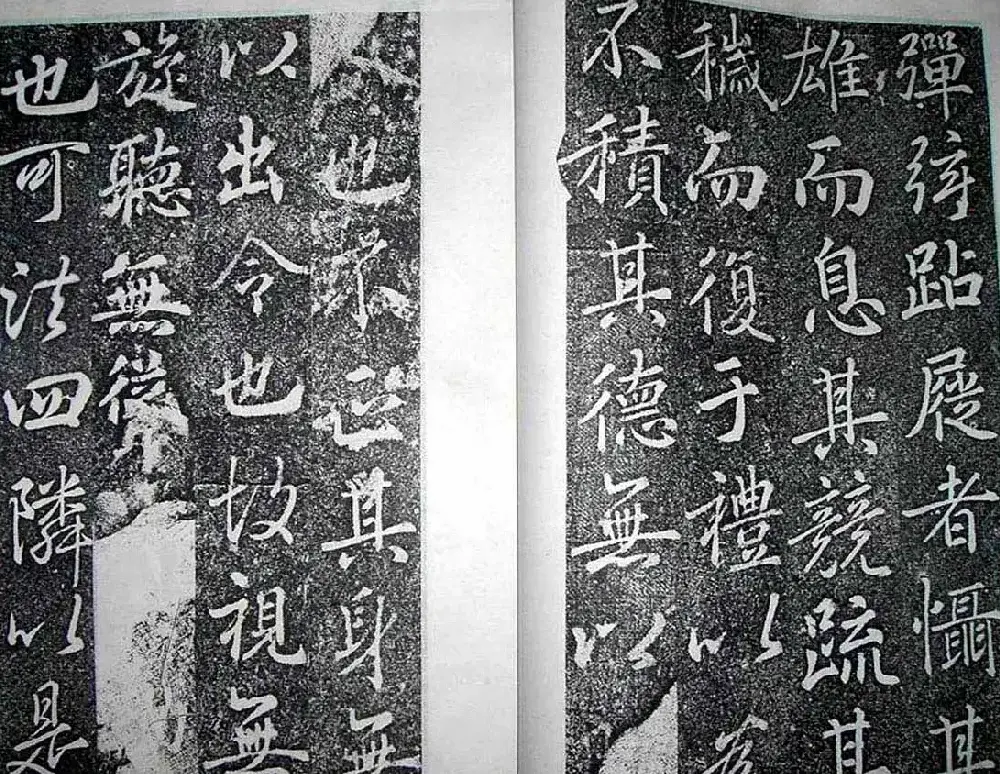 彈弦跕屣者懾其
雄而息其競疏其
穢而復于禮以
不積其德無以
也不正其身無
以出令也故視無
旋聽無
也可法四隣以是